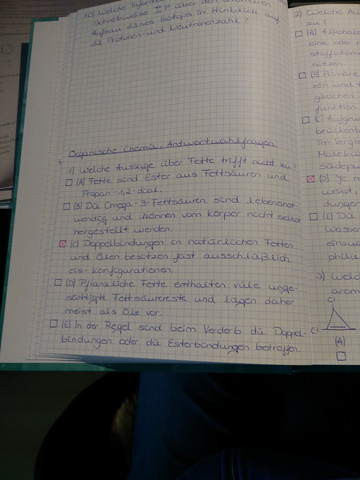 10) Welche
Schreibweise über den
Aufbau dieses Isotops in Hinblick auf
die Protonen und Neutronenzahl?
Organische Chemie, Antwortwahlfragen
1) Welche Aussage über Fette trifft nicht zu?
(A) Fette sind Ester aus Fettsäuren und
Propan-1,2-diol.
(B) Da Omega-3-Fettsäuren sind lebensnot-
wendig und können vom Körper nicht selbst
hergestellt werden.
(C) Doppelbindungen in natürlichen Fetten
und Ölen besitzen fast ausschließlich
cis-Konfigurationen.
(D) Pflanzliche Fette enthalten viele unge-
sättigte Fettsäurereste und liegen daher
meist als Öle vor.
(E) In der Regel sind beim Verderb die Doppel-
bindungen oder die Esterbindungen betroffen.
2) Welche
zu?
(A)
eine
(B)
sen und
gleichen
funktion
(C)
brücken
im Vergl
Molekül
Siedepu
(D) Je
weist
dungen
(E) Da
Wasser
philie
3) Welch
arom
Cl
Cl
(A)